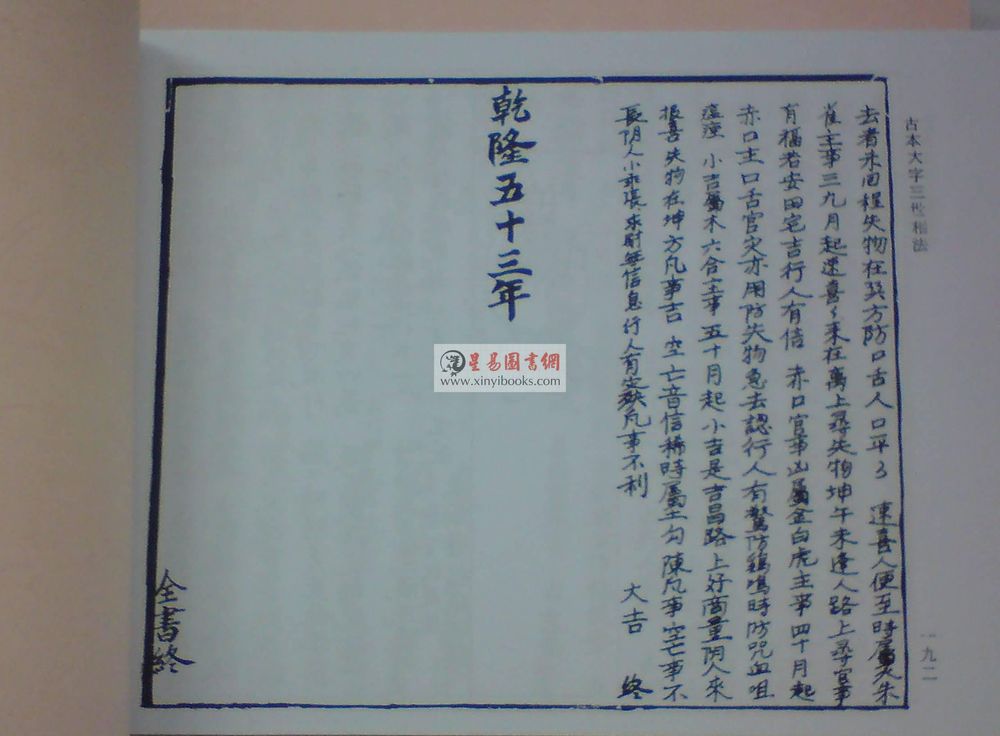 古本大字三世相法
一九二
去者未回程失物在巽方防口舌人口平々 速喜人便至時屬火朱
雀主事三九月起速喜々來在离上尋失物坤午未逢人路上尋官事
有福者安田宅吉行人有信 赤口官事凶屬金白虎主事四十月起
赤口主口舌官灾亦用防失物急去認行人有驚防鷄鳴時防咒血咀
瘟㾮 小吉屬木六合主事五十月起小吉是吉昌路上好商量阴人來
报喜失物在坤方凡事吉 空亡音信稀時屬土勾陳凡事空亡事不
長阴人小乖張求財無信息行人有灾殃凡事不利 大吉 终
乾隆五十三年
全書終
星易圖書網
www.xinyibooks.com